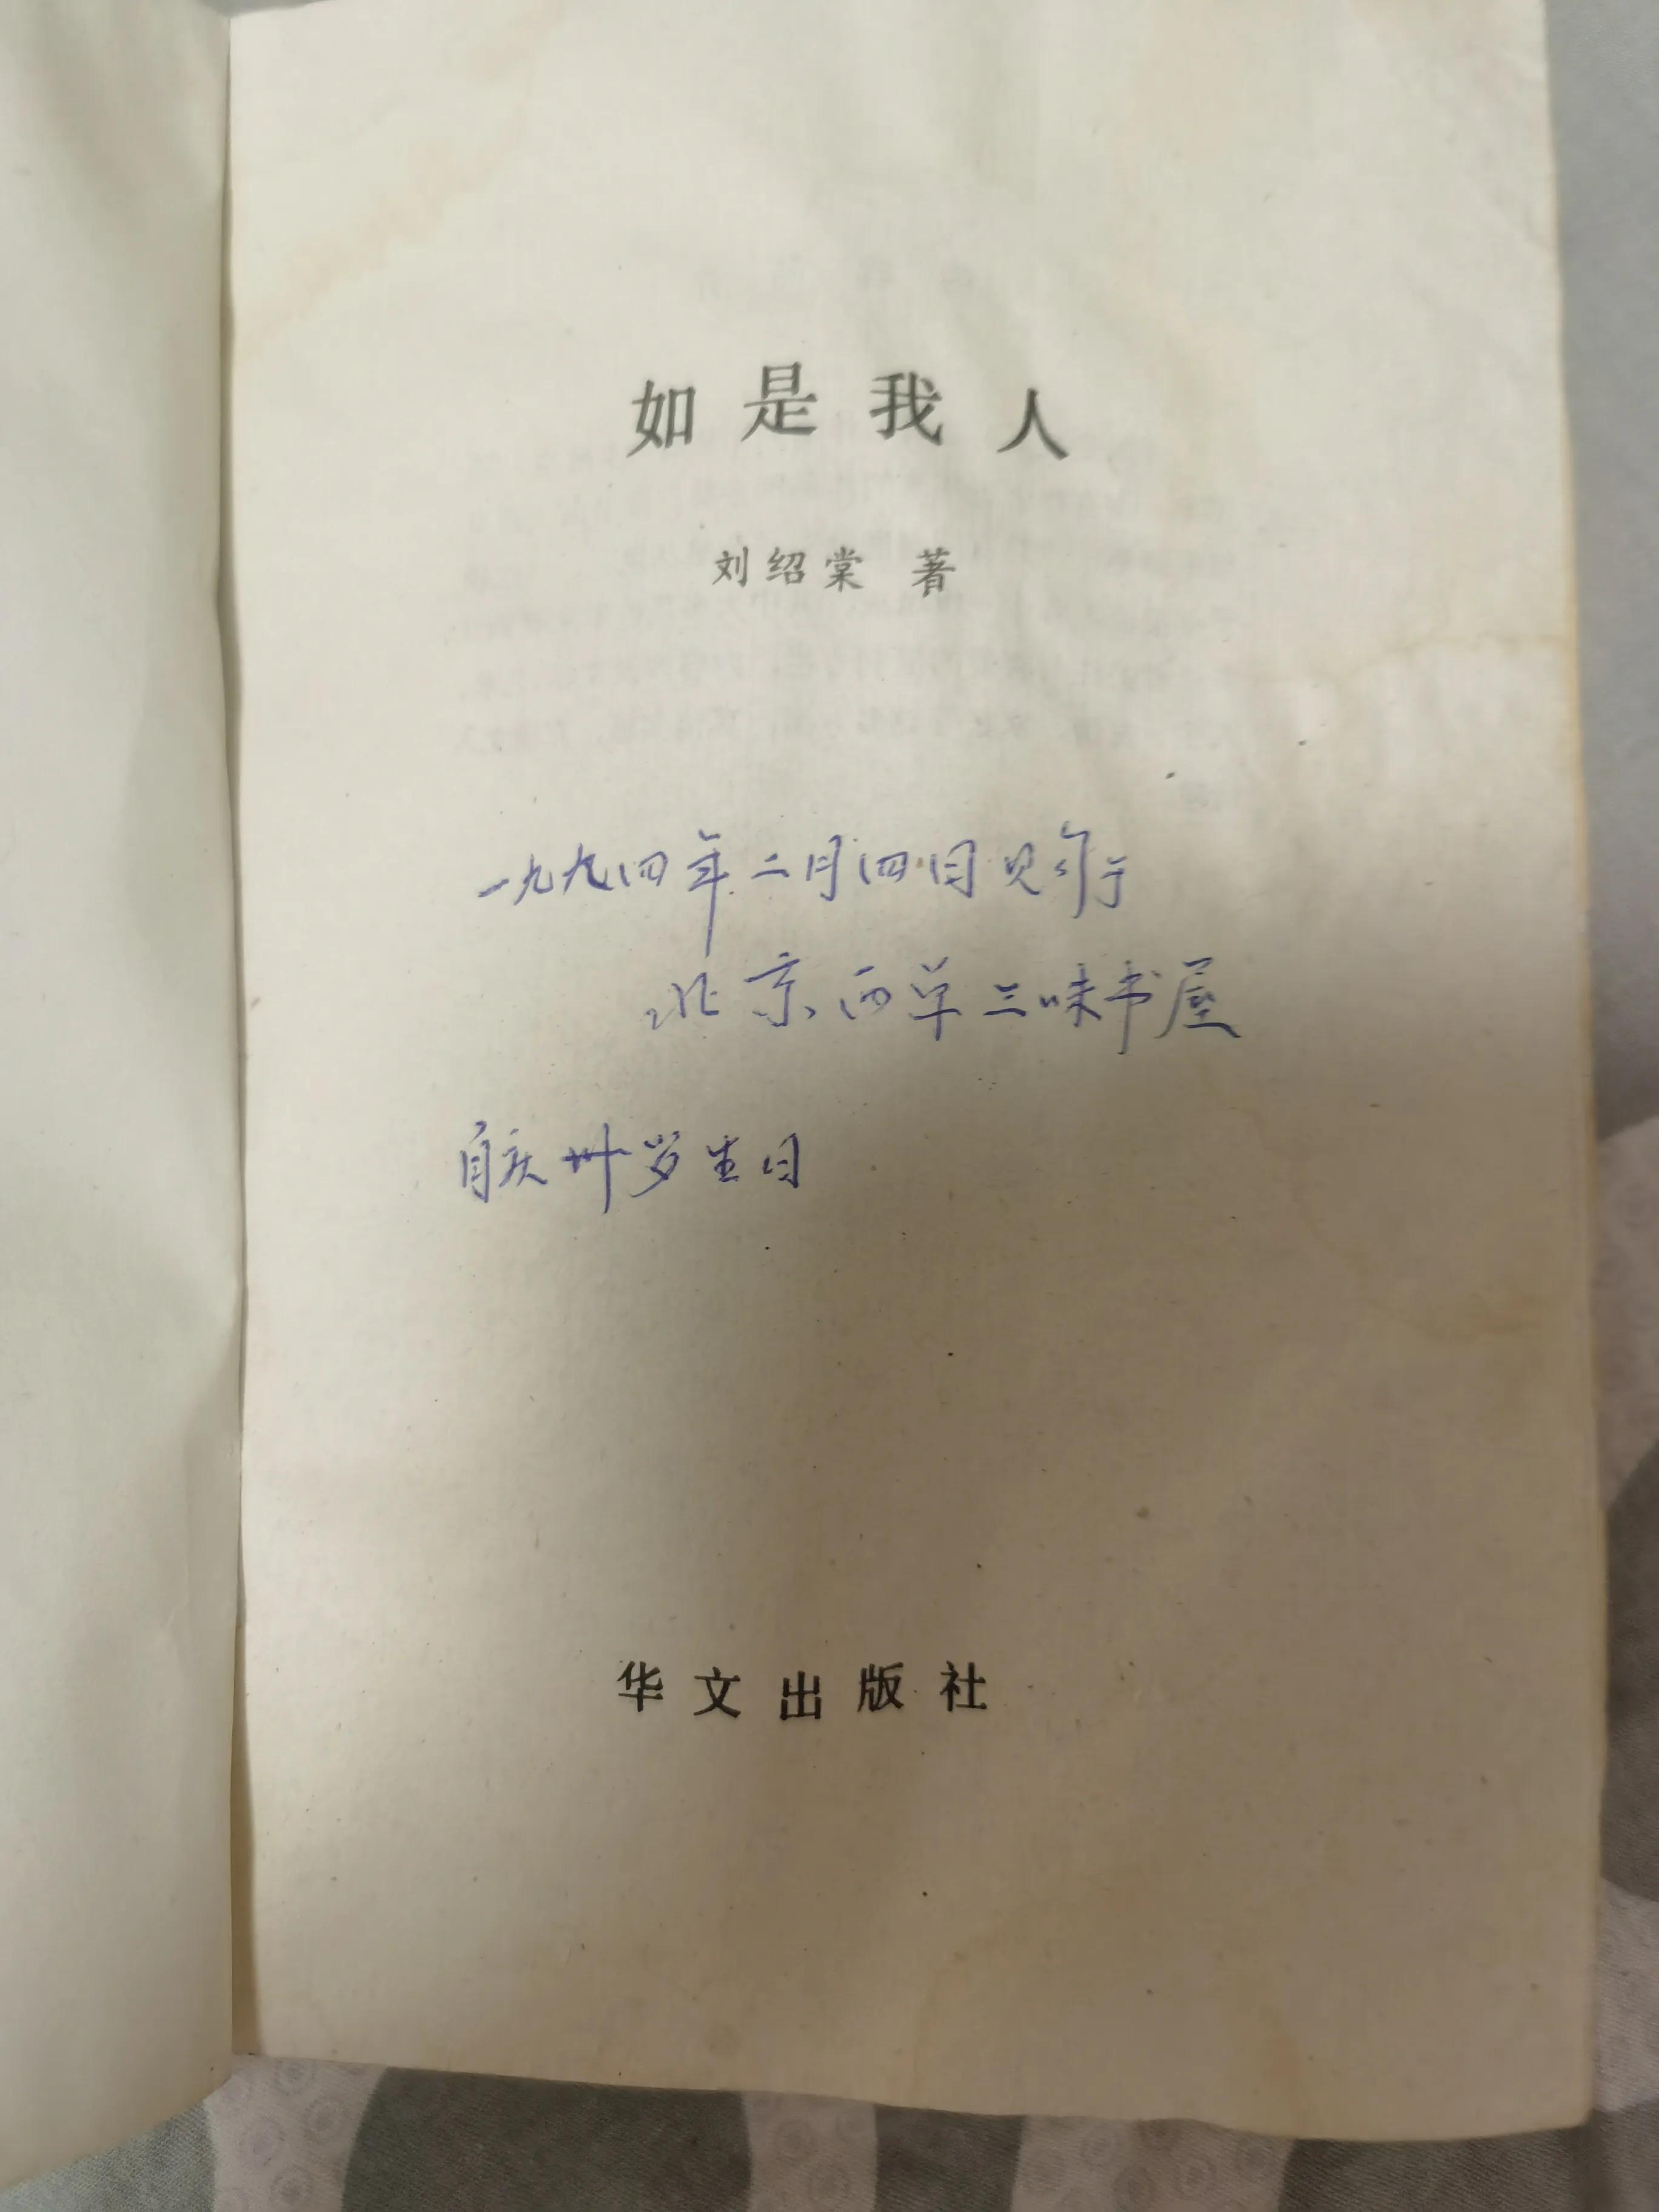 如是我人
刘绍棠 著
一九九四年二月四日购于
北京西单三味书屋
自庆卅岁生日
华文出版社